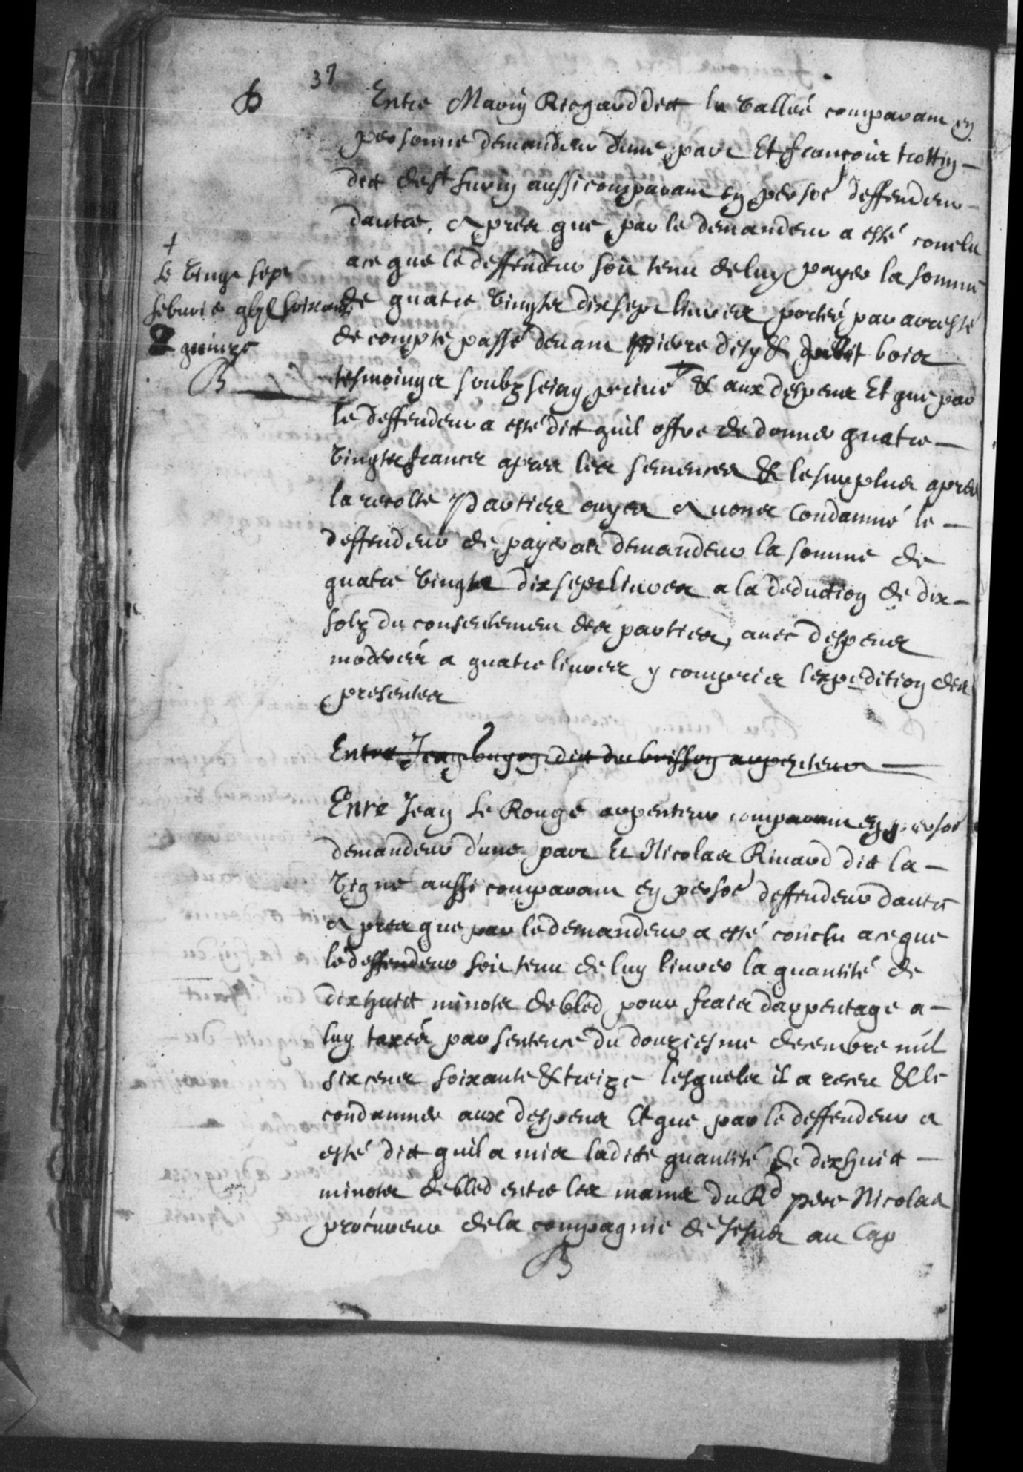 37
Entre Marin Ricgard dict la Vallée comparant en
personne demandeur d'une part Et francoois trottin
dict de st surin aussi comparant en persoe deffendeur
dautre, Apres que par le demandeur a esté conclu
a ce que le deffendeur soit tenu de luy payer la somme
de quatre Vingts dix sept livres portée par arresté
de compte passé devant & bois
tesmoings soubz seing privé + & aux despens Et que par
+
le Vingt sept
febvrie gbjc soixante
quinze
le deffendeur a esté dict quil offre de donner quatre
Vingts francs apres les semences & le surplus apres
la recolte Parties ouyes Avons Condamné le
deffendeur de payer au demandeur la somme de
quatre Vingts dix sept livres a la deduction de dix
solz du consentement des parties, avec despens
moderés a quatre livres y compris lexpedition des
presentes
Entre Jean dict du buisson arpenteur
Enre Jean Le Rouge arpenteur comparant en persoe
demandeur d'une part Et Nicolas Rivard dict la
Vigne aussi comparant en persoe deffendeur dautre
Apres que par le demandeur a esté conclu a ce que
le deffendeur soit tenu de luy livrer la quantité de
dix huict minots de bled pour frais darpentage a
luy taxés par sentence du douziesme decembre mil
six cens soixante & treize lesquels il a receu & le
condamner aux despens Et que par le deffendeur a
esté dict quil a mis ladicte quantité de dix huict
minots de bled entre les mains du Rd pere Nicolas
procureur de la compagnie de Jesus au Cap